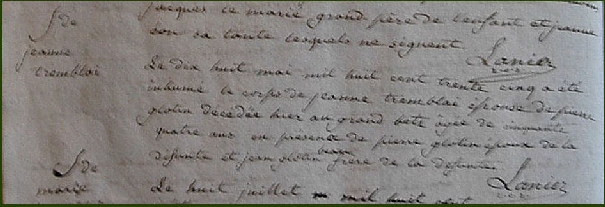 jacques le marié grand père de l'enfant et jeanne
son sa tante lesquels ne signent
Lanier
S. de
jeanne
tremblai
Le dix huit mai mil huit cent trente cinq a été
inhumé le corps de jeanne tremblai épouse de pierre
glotin decedée hier au grand bete agée de cinquante
quatre ans en presence de pierre glotin époux de la
defunte et jean glotin beau frere de la defunte
Lanier
S. de
marie
Le huit juillet mil huit cent